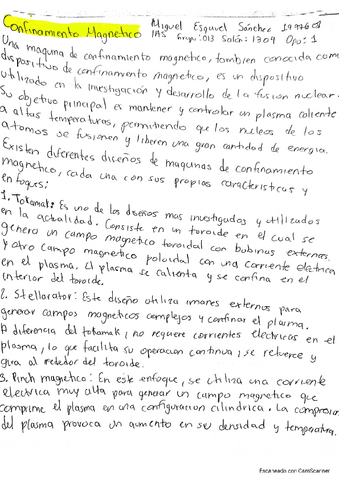 Confinamiento Magnetico Miguel Esquivel Sánchez
IAS Grupo: 013 Salón: 1304 Opo: 1
Una maquina de confinamiento magnetico, tambien conocida como
dispositivo de confinamiento magnetico, es un dispositivo
utilizado en la investigación y desarrollo de la fusión nuclear.
Su objetivo principal es mantener y controlar un plasma caliente
a altas temperaturas, permitiendo que los nucleos de los
atomos se fusionen y liberen una gran cantidad de energia.
Existen diferentes diseños de maquinas de confinamiento
magnetico, cada una con sus propias caracteristicas y
enfoques:
1. Tokamak: Es uno de los diseños mas investigados y utilizados
en la actualidad. Consiste en un toroide en el cual se
genera un campo magnetico toroidal con bobinas externas
y otro campo magnetico poloidal con una corriente electrica
en el plasma. El plasma se calienta y se confina en el
interior del toroide.
2. Stellarator: Este diseño utiliza imanes externos para
generar campos magneticos complejos y confinar el plasma.
A diferencia del tokamak, no requiere corrientes electricas en el
plasma, lo que facilita su operacion continua, se retuerce y
gira al rededor del toroide.
3. Pinch magnetico: En este enfoque, se utiliza una corriente
electrica muy alta para generar un campo magnetico que
comprime el plasma en una configuracion cilindrica. La compresion
del plasma provoca un aumento en su densidad y temperatura.
Escaneado con CamScanner